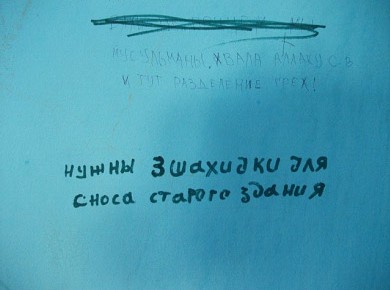 МУСУЛЬМАНЫ, ХВАЛА АЛЛАХУ С Б
И ТУТ РАЗДЕЛЕНИЕ ГРЕХ!
НУЖНЫ 3 ШАХИДКИ ДЛЯ
СНОСА СТАРОГО ЗДАНИЯ